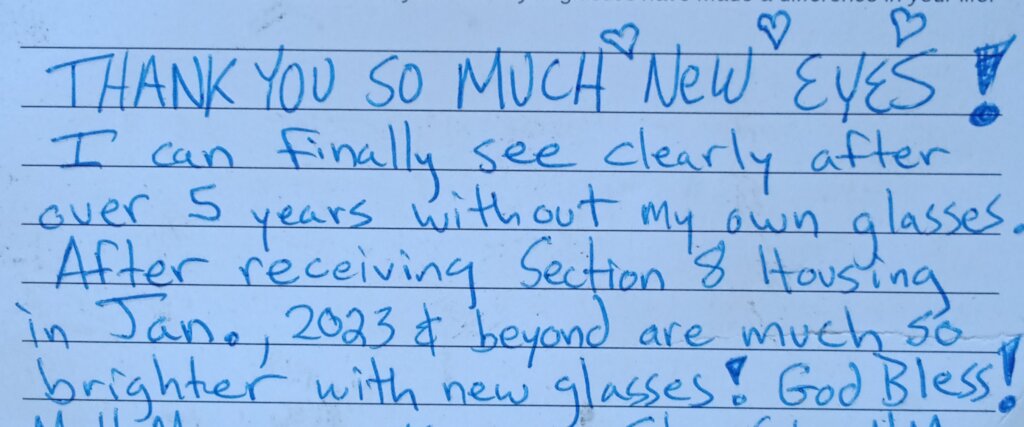 made a difference in your life.
THANK YOU SO MUCH NEW EYES!
I can finally see clearly after
over 5 years without my own glasses.
After receiving Section 8 Housing
in Jan., 2023 & beyond are much so
brighter with new glasses! God Bless!